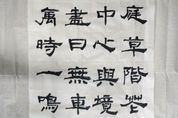 庭草階花
中心與境
盡日無車
禽時一鳴